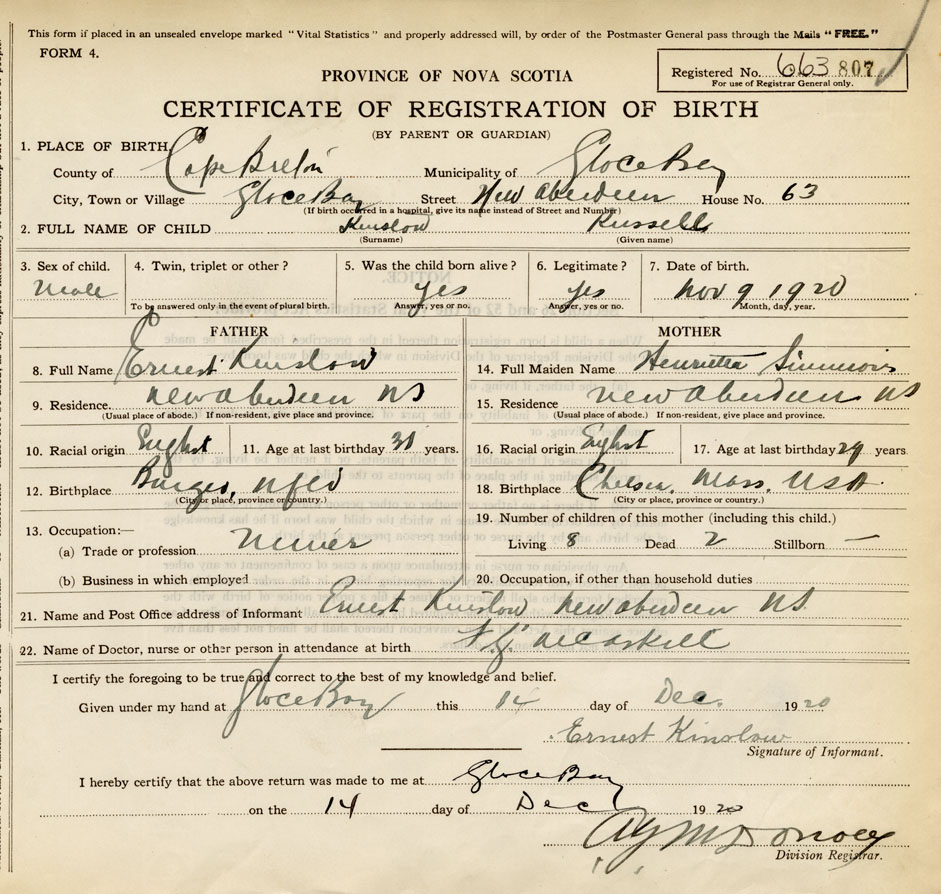 This form if placed in an unsealed envelope marked "Vital Statistics" and properly addressed will, by order of the Postmaster General pass through the Mails "FREE."
FORM 4.
Registered No. 663 807
For use of Registrar General only.
PROVINCE OF NOVA SCOTIA
CERTIFICATE OF REGISTRATION OF BIRTH
(BY PARENT OR GUARDIAN)
1. PLACE OF BIRTH,
County of Cape Breton Municipality of Glace Bay
City, Town or Village Glace Bay Street New Aberdeen House No. 63
(If birth occurred in a hospital, give its name instead of Street and Number)
2. FULL NAME OF CHILD Kinslow Russell
(Surname) (Given name)
3. Sex of child. 4. Twin, triplet or other? 5. Was the child born alive? 6. Legitimate? 7. Date of birth.
Male yes yes Nov 9 1920
To be answered only in the event of plural birth. Answer, yes or no. Answer, yes or no. Month, day, year.
FATHER
8. Full Name Ernest Kinslow
9. Residence. New Aberdeen NS
(Usual place of abode.) If non-resident, give place and province.
10. Racial origin 11. Age at last birthday years.
12. Birthplace Burgeo, Nfld
(City or place, province or country.)
13. Occupation:—
(a) Trade or profession Miner
(b) Business in which employed
MOTHER
14. Full Maiden Name Henrietta Simmons
15. Residence New Aberdeen NS
(Usual place of abode.) If non-resident, give place and province.
16. Racial origin 17. Age at last birthday 29 years
18. Birthplace Chelsea, Mass. USA
(City or place, province or country.)
19. Number of children of this mother (including this child.)
Living 8 Dead 2 Stillborn —
20. Occupation, if other than household duties
21. Name and Post Office address of Informant Ernest Kinslow New Aberdeen NS
22. Name of Doctor, nurse or other person in attendance at birth McCaskill
I certify the foregoing to be true and correct to the best of my knowledge and belief.
Given under my hand at Glace Bay this 14 day of Dec. 1920
Ernest Kinslow
Signature of Informant.
I hereby certify that the above return was made to me at Glace Bay
on the 14 day of Dec 1920
Division Registrar.